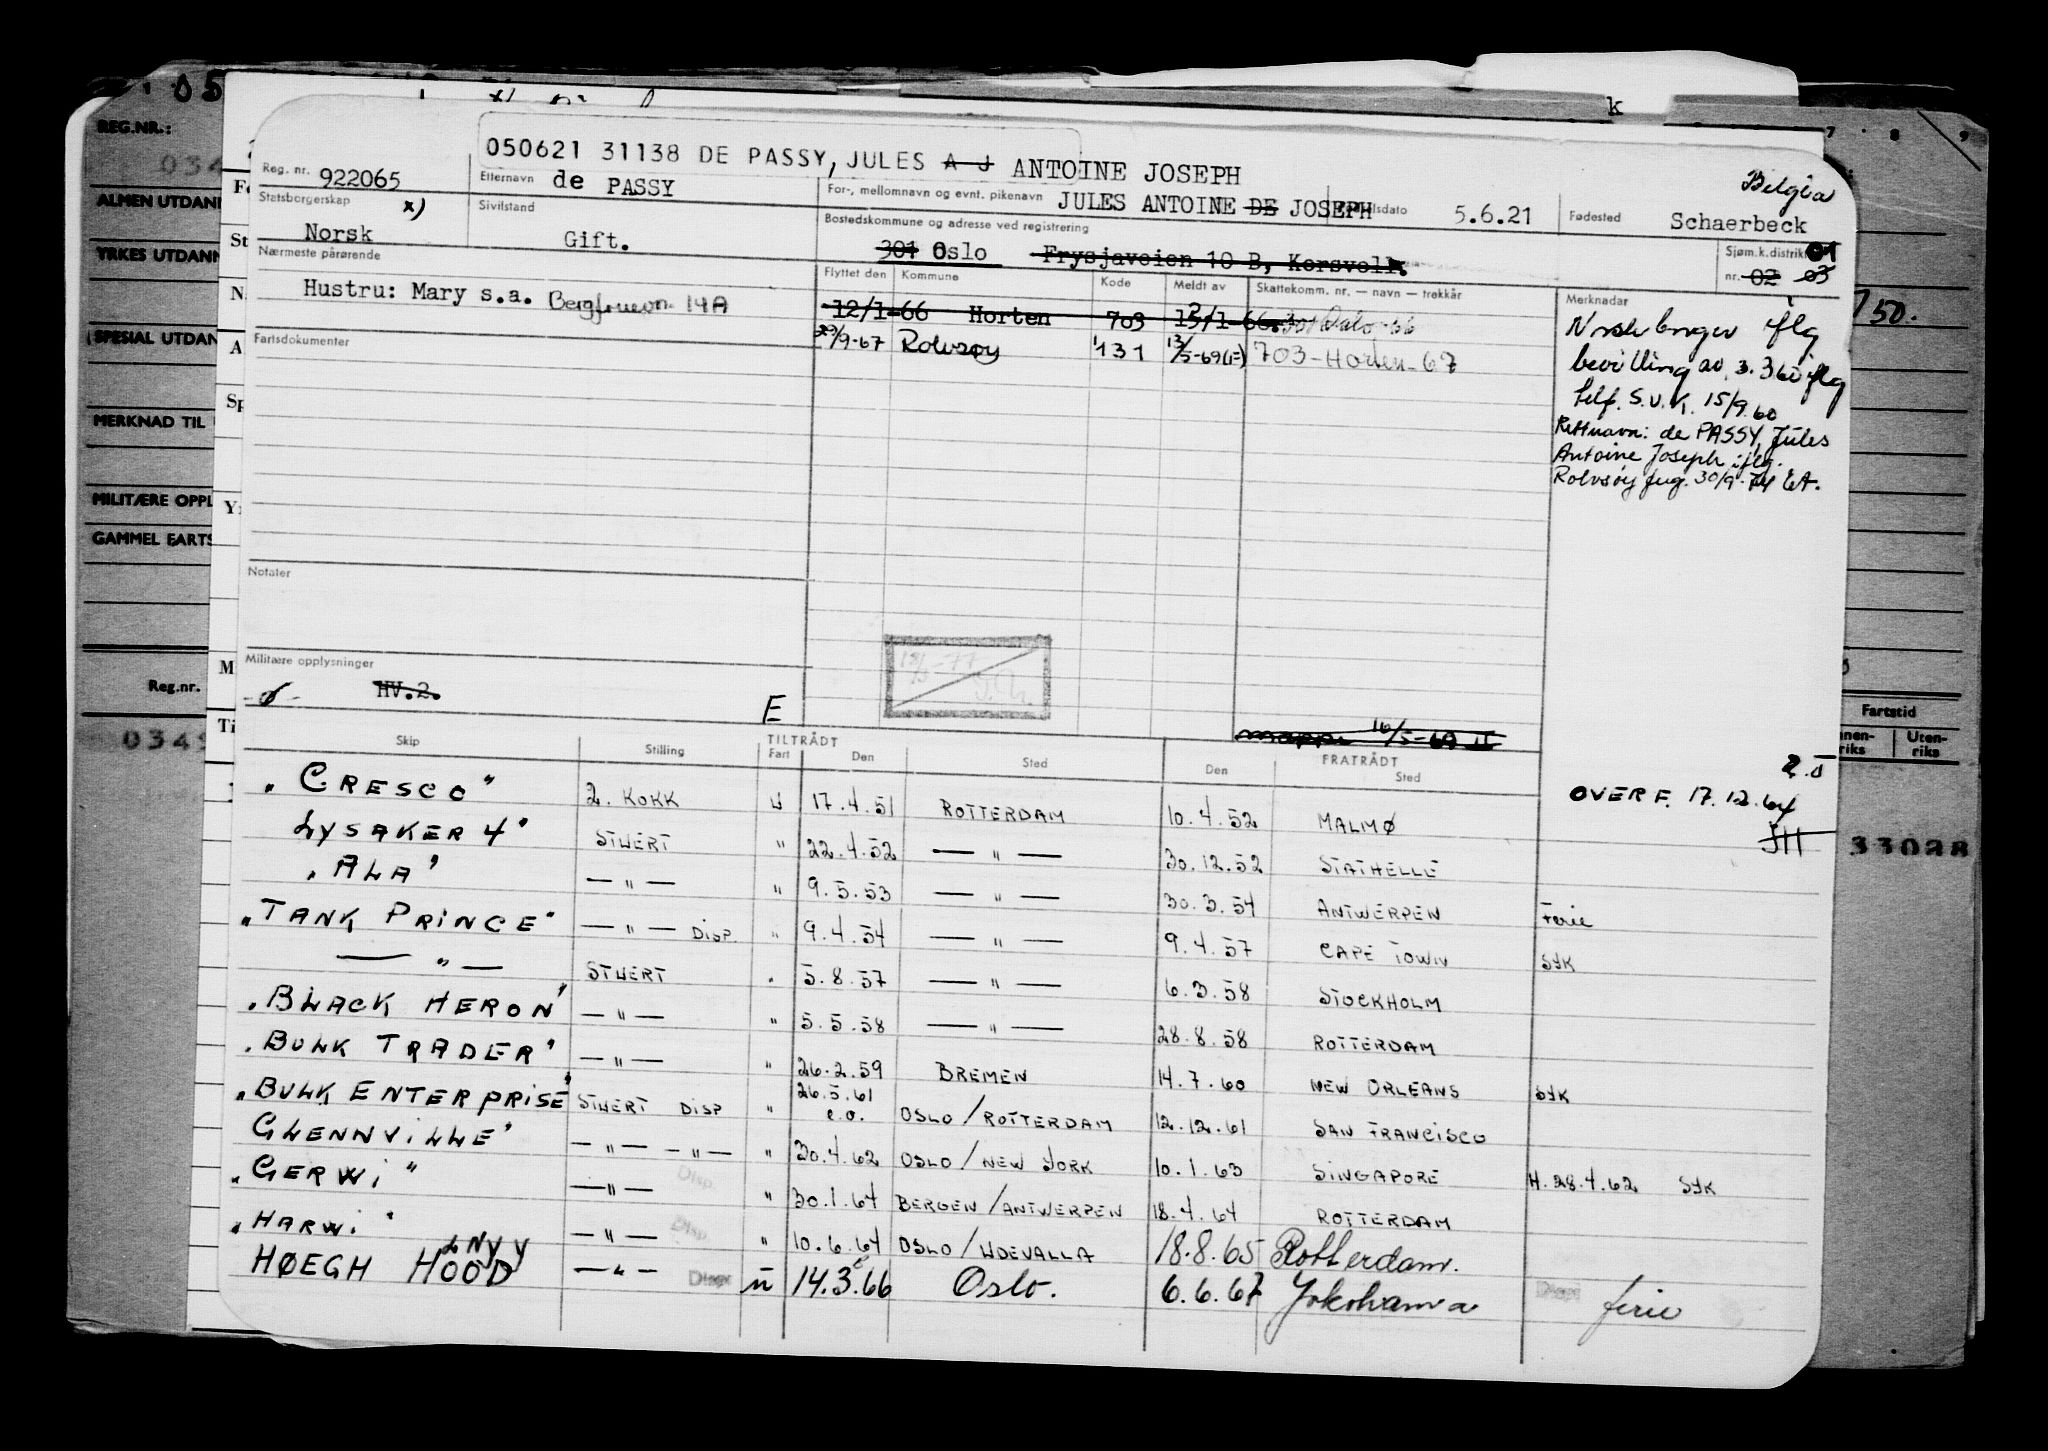 050621 31138 DE PASSY, JULES A J ANTOINE JOSEPH
Reg. nr. 922065
Etternavn de PASSY
For-, mellomnavn og evnt. pikenavn JULES ANTOINE DE JOSEPH
lsdato 5.6.21
Fødested Schaerbeck
Belgia
Statsborgerskap x)
Norsk
Sivilstand
Gift.
Bostedskommune og adresse ved registrering
301 Oslo Frysjaveien 10 B, Korsvoll.
Sjøm.k.distrikt
nr. 02 03 01
Nærmeste pårørende
Hustru: Mary s.a. 14A
Flyttet den Kommune Kode Meldt av Skattekomm. nr. — navn — trekkår
12/1-66 Horten 703
29/9-67 Rolvsøy 131 13/5-69(IF) 703-Horten-67
Merknadar
Norsk borger iflg
bevilling av 3.360 iflg
telf. S.u.k. 15/9.60
Rett navn: de PASSY, Jules
Antoine Joseph iflg.
Rolvsøy fng. 30/9-74 EA.
Fartsdokumenter
Notater
Militære opplysninger
HV.2.
E
16/5-69
OVERF. 17.12.64
JH
Skip Stilling TILTRÅDT Fart Den Sted FRATRÅDT Den Sted
"CRESCO" 2. KOKK U 17.4.51 ROTTERDAM 10.4.52 MALMØ
LYSAKER 4" STUERT " 22.4.52 — " — 30.12.52 STATHELLE
"ALA" — " — " 9.5.53 — " — 30.3.54 ANTWERPEN Ferie
"TANK PRINCE" — " — DISP. " 9.4.54 — " — 9.4.57 CAPE TOWN SYK
— " — STUERT " 5.8.57 — " — 6.3.58 STOCKHOLM
"BLACK HERON" — " — " 5.5.58 — " — 28.8.58 ROTTERDAM
"BULK TRADER" — " — " 26.2.59 BREMEN 14.7.60 NEW ORLEANS SYK
"BULK ENTERPRISE" STUERT DISP " 26.5.61 e.o. OSLO/ROTTERDAM 12.12.61 SAN FRANCISCO
GLENNVILLE" — " — — " — " 30.4.62 OSLO/NEW YORK 10.1.63 SINGAPORE H. 28.4.62 SYK
"GERWI" — " — Disp. " 30.1.64 BERGEN/ANTWERPEN 18.4.64 ROTTERDAM
"HARWI" — " — Disp " 10.6.64 OSLO/UDEVALLA 18.8.65 Rotterdam.
HØEGH HOOD — " — Disp u 14.3.66 Oslo. 6.6.67 Yokohama ferie
REG.NR.:
ALMEN UTDANN
YRKES UTDANN
SPESIAL UTDAN
MERKNAD TIL
MILITÆRE OPPL
GAMMEL FARTS
Reg.nr.
Fartstid
Uten-
riks
33028